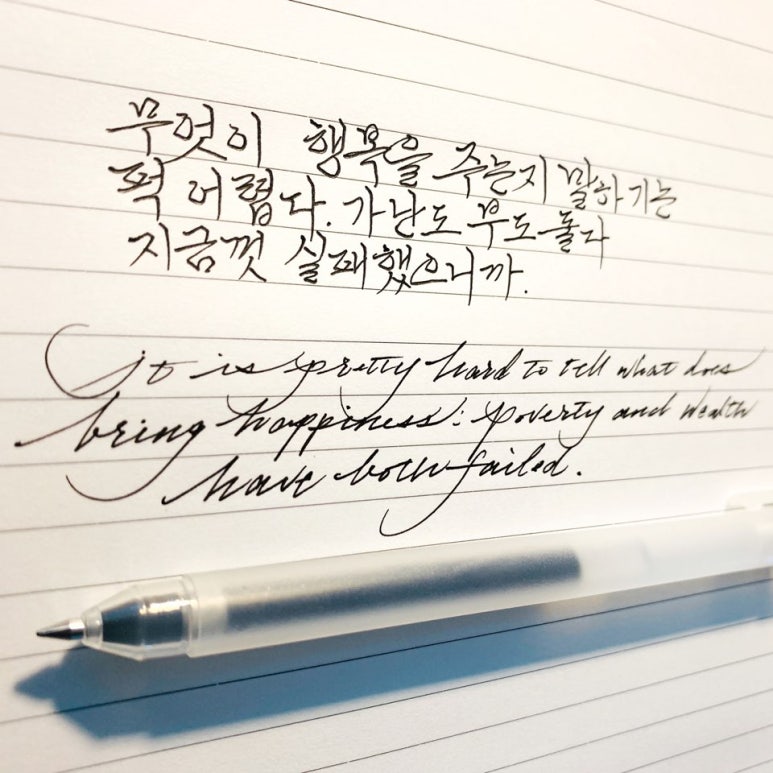 무엇이 행복을 주는지 말하기는
퍽 어렵다. 가난도 부도 둘다
지금껏 실패했으니까.
it is pretty hard to tell what does
bring happiness: poverty and wealth
have both failed.